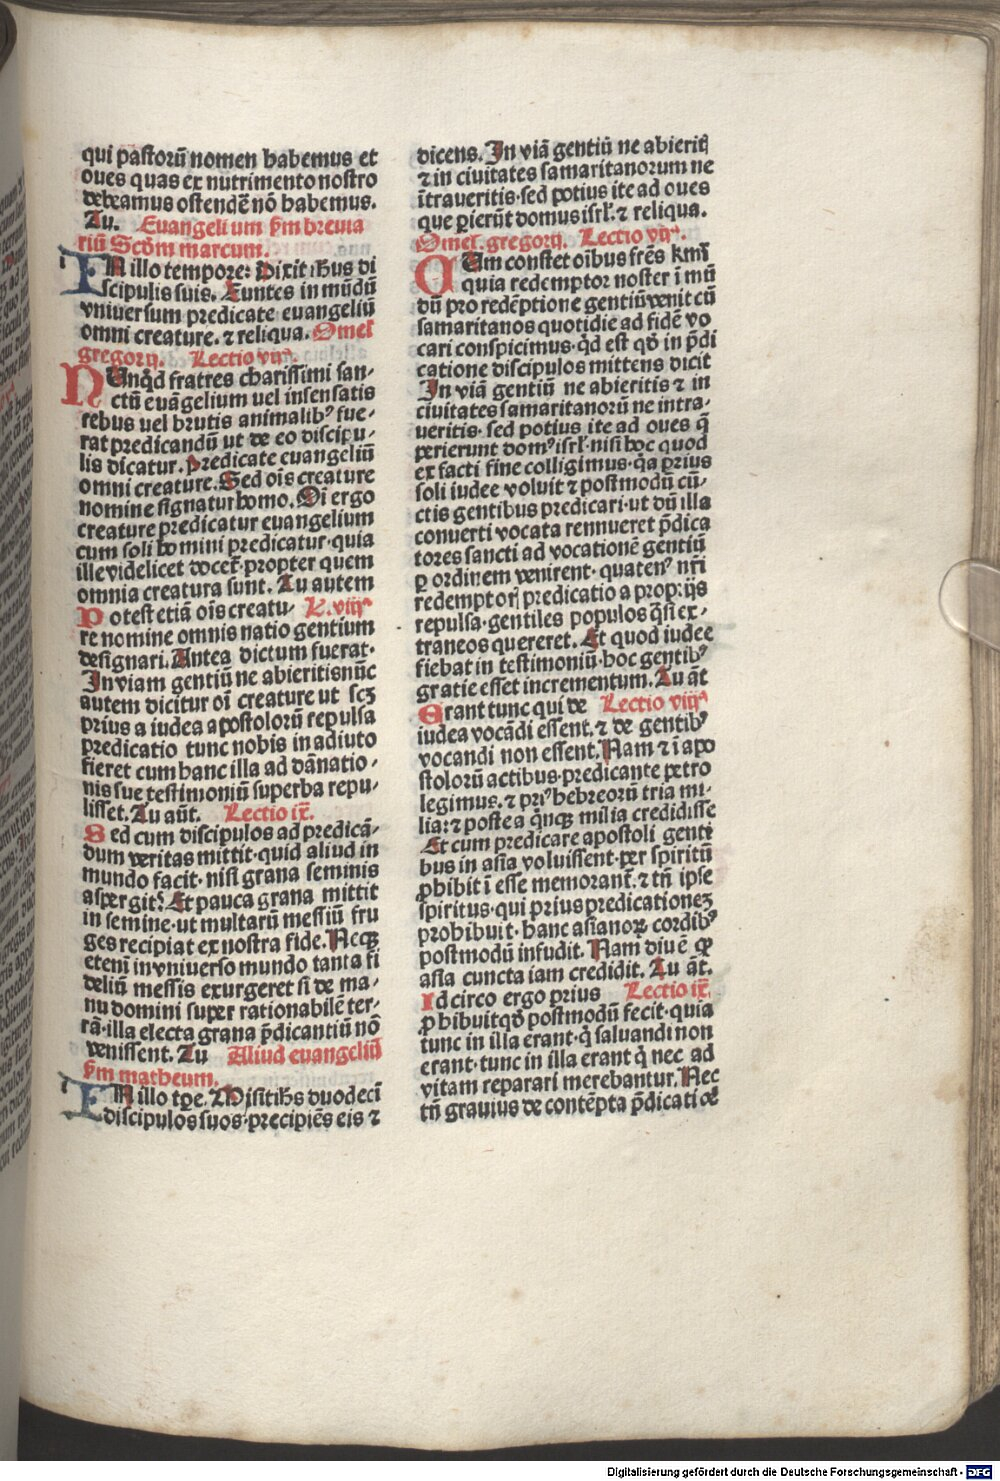 qui pastorū nomen habemus et
oues quas ex nutrimento nostro
debeamus ostendē nō habemus.
Tu. Euangelium sm breuia
riū Scdm marcum.
IN illo tempore: Dixit ihus di
scipulis suis. Euntes in mūdū
vniuersum predicate euangeliū
omni creature. ⁊ reliqua. Omel
gregorij. Lectio vijᵃ.
NUnqd fratres charissimi san-
ctū euāgelium uel insensatis
rebus uel brutis animalibꝰ fue-
rat predicandū ut de eo discipu-
lis dicatur. Predicate euangeliū
omni creature. Sed oīs creature
nomine signatur homo. Oī ergo
creature predicatur euangelium
cum soli homini predicatur· quia
ille videlicet docet· propter quem
omnia creatura sunt. Tu autem
Potest etiā oīs creatu- L. viijᵃ
re nomine omnis natio gentium
designari. Antea dictum fuerat·
In viam gentiū ne abieritis nūc
autem dicitur oī creature ut scꝫ
prius a iudea apostolorū repulsa
predicatio tunc nobis in adiuto
fieret cum hanc illa ad dānatio-
nis sue testimoniū superba repu-
lisset. Tu aūt. Lectio ix.
Sed cum discipulos ad predicā-
dum veritas mittit· quid aliud in
mundo facit· nisi grana seminis
aspergit? Et pauca grana mittit
in semine· ut multarū messiū fru
ges recipiat ex nostra fide. Neqꝫ
etenī in vniuerso mundo tanta fi
deliū messis exurgeret si de ma-
nu domini super rationabilē ter-
rā· illa electa grana p̄dicantiū nō
venissent. Tu Aliud euangeliū
sm matheum.
IN illo tp̄e. Misit ihs duodecī
discipulos suos· precipiēs eis ⁊
dicens. In viā gentiū ne abieritꝭ
⁊ in ciuitates samaritanorum ne
ītraueritis· sed potius ite ad oues
que perierūt domus isrl̄. ⁊ reliqua.
Omel. gregorij. Lectio vijᵃ.
CUm constet oībus frēs kmī
quia redemptor noster ī mū
dū pro redēptione gentiū venit cū
samaritanos quotidie ad fidē vo
cari conspicimus· qd est qō in p̄di
catione discipulos mittens dicit
In viā gentiū ne abieritis ⁊ in
ciuitates samaritanorū ne intra-
ueritis· sed potius ite ad oues q̄
perierunt domꝰ isrl̄· nisi hoc quod
ex facti fine colligimus· qa prius
soli iudee voluit ⁊ postmodū cū-
ctis gentibus predicari· ut dū illa
conuerti vocata rennueret p̄dica
tores sancti ad vocationē gentiū
ꝑ ordinem venirent· quatenꝰ nr̄i
redemptorꝭ predicatio a proprijs
repulsa· gentiles populos q̄si ex-
traneos quereret. Et quod iudee
fiebat in testimoniū· hoc gentibꝰ
gratie esset incrementum. Tu āt
Erant tunc qui de Lectio viijᵃ
iudea vocādi essent. ⁊ de gentibꝰ
vocandi non essent. Nam ⁊ ī apo
stolorū actibus· predicante petro
legimus. ⁊ priꝰ hebreorū tria mi-
lia: ⁊ postea qnqꝫ milia credidisse
Et cum predicare apostoli genti
bus in asia voluissent· per spiritū
ꝓhibitī esse memorant̄. ⁊ tn̄ ipse
spiritus· qui prius predicationeꝫ
prohibuit· hanc asianoꝝ cordibꝰ
postmodū infudit. Nam diu ē qꝫ
asia cuncta iam credidit. Tu āt.
Idcirco ergo prius Lectio ix
ꝓhibuit qō postmodū fecit· quia
tunc in illa erant· q̄ saluandi non
erant· tunc in illa erant q̄ nec ad
vitam reparari merebantur. Nec
tn̄ grauius de contēpta p̄dicatiōe
Digitalisierung gefördert durch die Deutsche Forschungsgemeinschaft - DFG